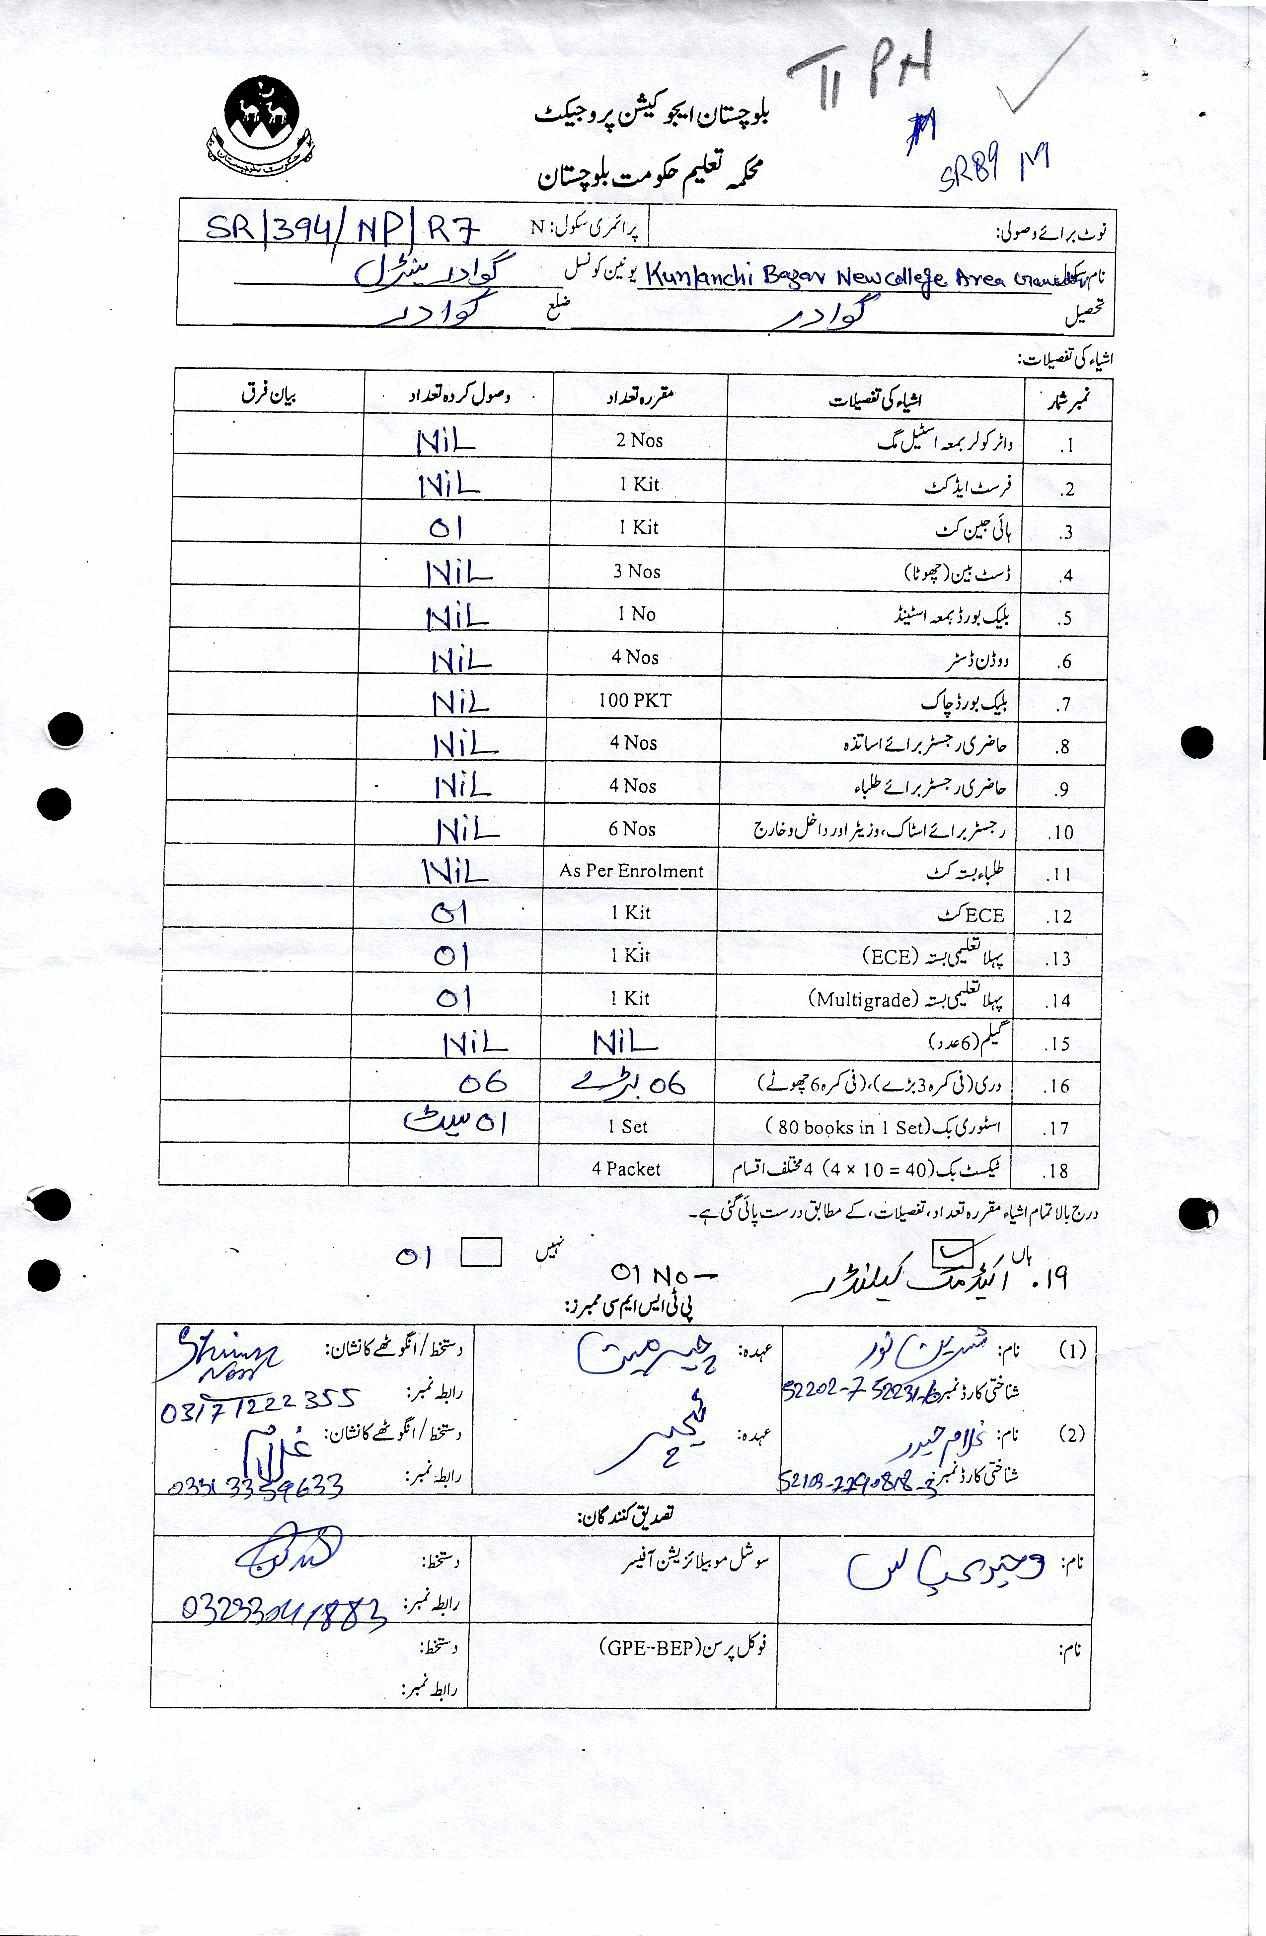 PN
بلوچستان ایجوکیشن پروجیکٹ
SR89 M
محکمہ تعلیم حکومت بلوچستان
نوٹ برائے وصولی: پرائمری سکول: N SR/394/NP/R7
نام سکول Kunlanchi Bazar New college Area یونین کونسل گوادر سینٹرل
تحصیل گوادر ضلع گوادر
اشیاء کی تفصیلات:
نمبر شمار اشیاء کی تفصیلات مقررہ تعداد وصول کردہ تعداد بیان فرق
1. واٹر کولر بمعہ اسٹیل مگ 2 Nos NiL
2. فرسٹ ایڈ کٹ 1 Kit NiL
3. ہائی جین کٹ 1 Kit 01
4. ڈسٹ بین (چھوٹا) 3 Nos NiL
5. بلیک بورڈ بمعہ اسٹینڈ 1 No NiL
6. ووڈن ڈسٹر 4 Nos NiL
7. بلیک بورڈ چاک 100 PKT NiL
8. حاضری رجسٹر برائے اساتذہ 4 Nos NiL
9. حاضری رجسٹر برائے طلباء 4 Nos NiL
10. رجسٹر برائے اسٹاک، وزیٹر اور داخل و خارج 6 Nos NiL
11. طلباء بستہ کٹ As Per Enrolment NiL
12. ECE کٹ 1 Kit 01
13. پہلا تعلیمی بستہ (ECE) 1 Kit 01
14. پہلا تعلیمی بستہ (Multigrade) 1 Kit 01
15. گیلم (6 عدد) NiL NiL
16. دری (فی کمرہ 3 بڑے)، (فی کمرہ 6 چھوٹے) 06 بڑے 06
17. اسٹوری بک (80 books in 1 Set) 1 Set 01 سیٹ
18. ٹیکسٹ بک (4 × 10 = 40) 4 مختلف اقسام 4 Packet
درج بالا تمام اشیاء مقررہ تعداد، تفصیلات، کے مطابق درست پائی گئی ہے۔
ہاں نہیں 01
19. اکیڈمک کیلنڈر 01 No
پی ٹی ایس ایم سی ممبرز:
(1) نام: شرین نور عہدہ: چیئرمین دستخط / انگوٹھے کا نشان:
شناختی کارڈ نمبر رابطہ نمبر: 03171222355
(2) نام: غلام حیدر عہدہ: ٹیچر دستخط / انگوٹھے کا نشان: غلام
شناختی کارڈ نمبر رابطہ نمبر: 03313359633
تصدیق کنندگان:
نام: سوشل موبیلائزیشن آفیسر دستخط:
رابطہ نمبر: 03233041883
نام: فوکل پرسن (GPE-BEP) دستخط:
رابطہ نمبر: